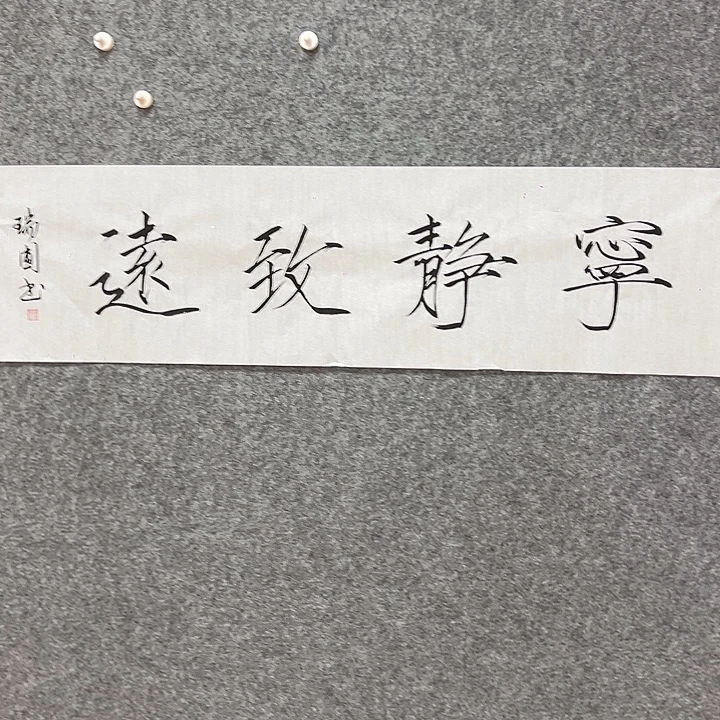 寧靜致遠
瑞園书